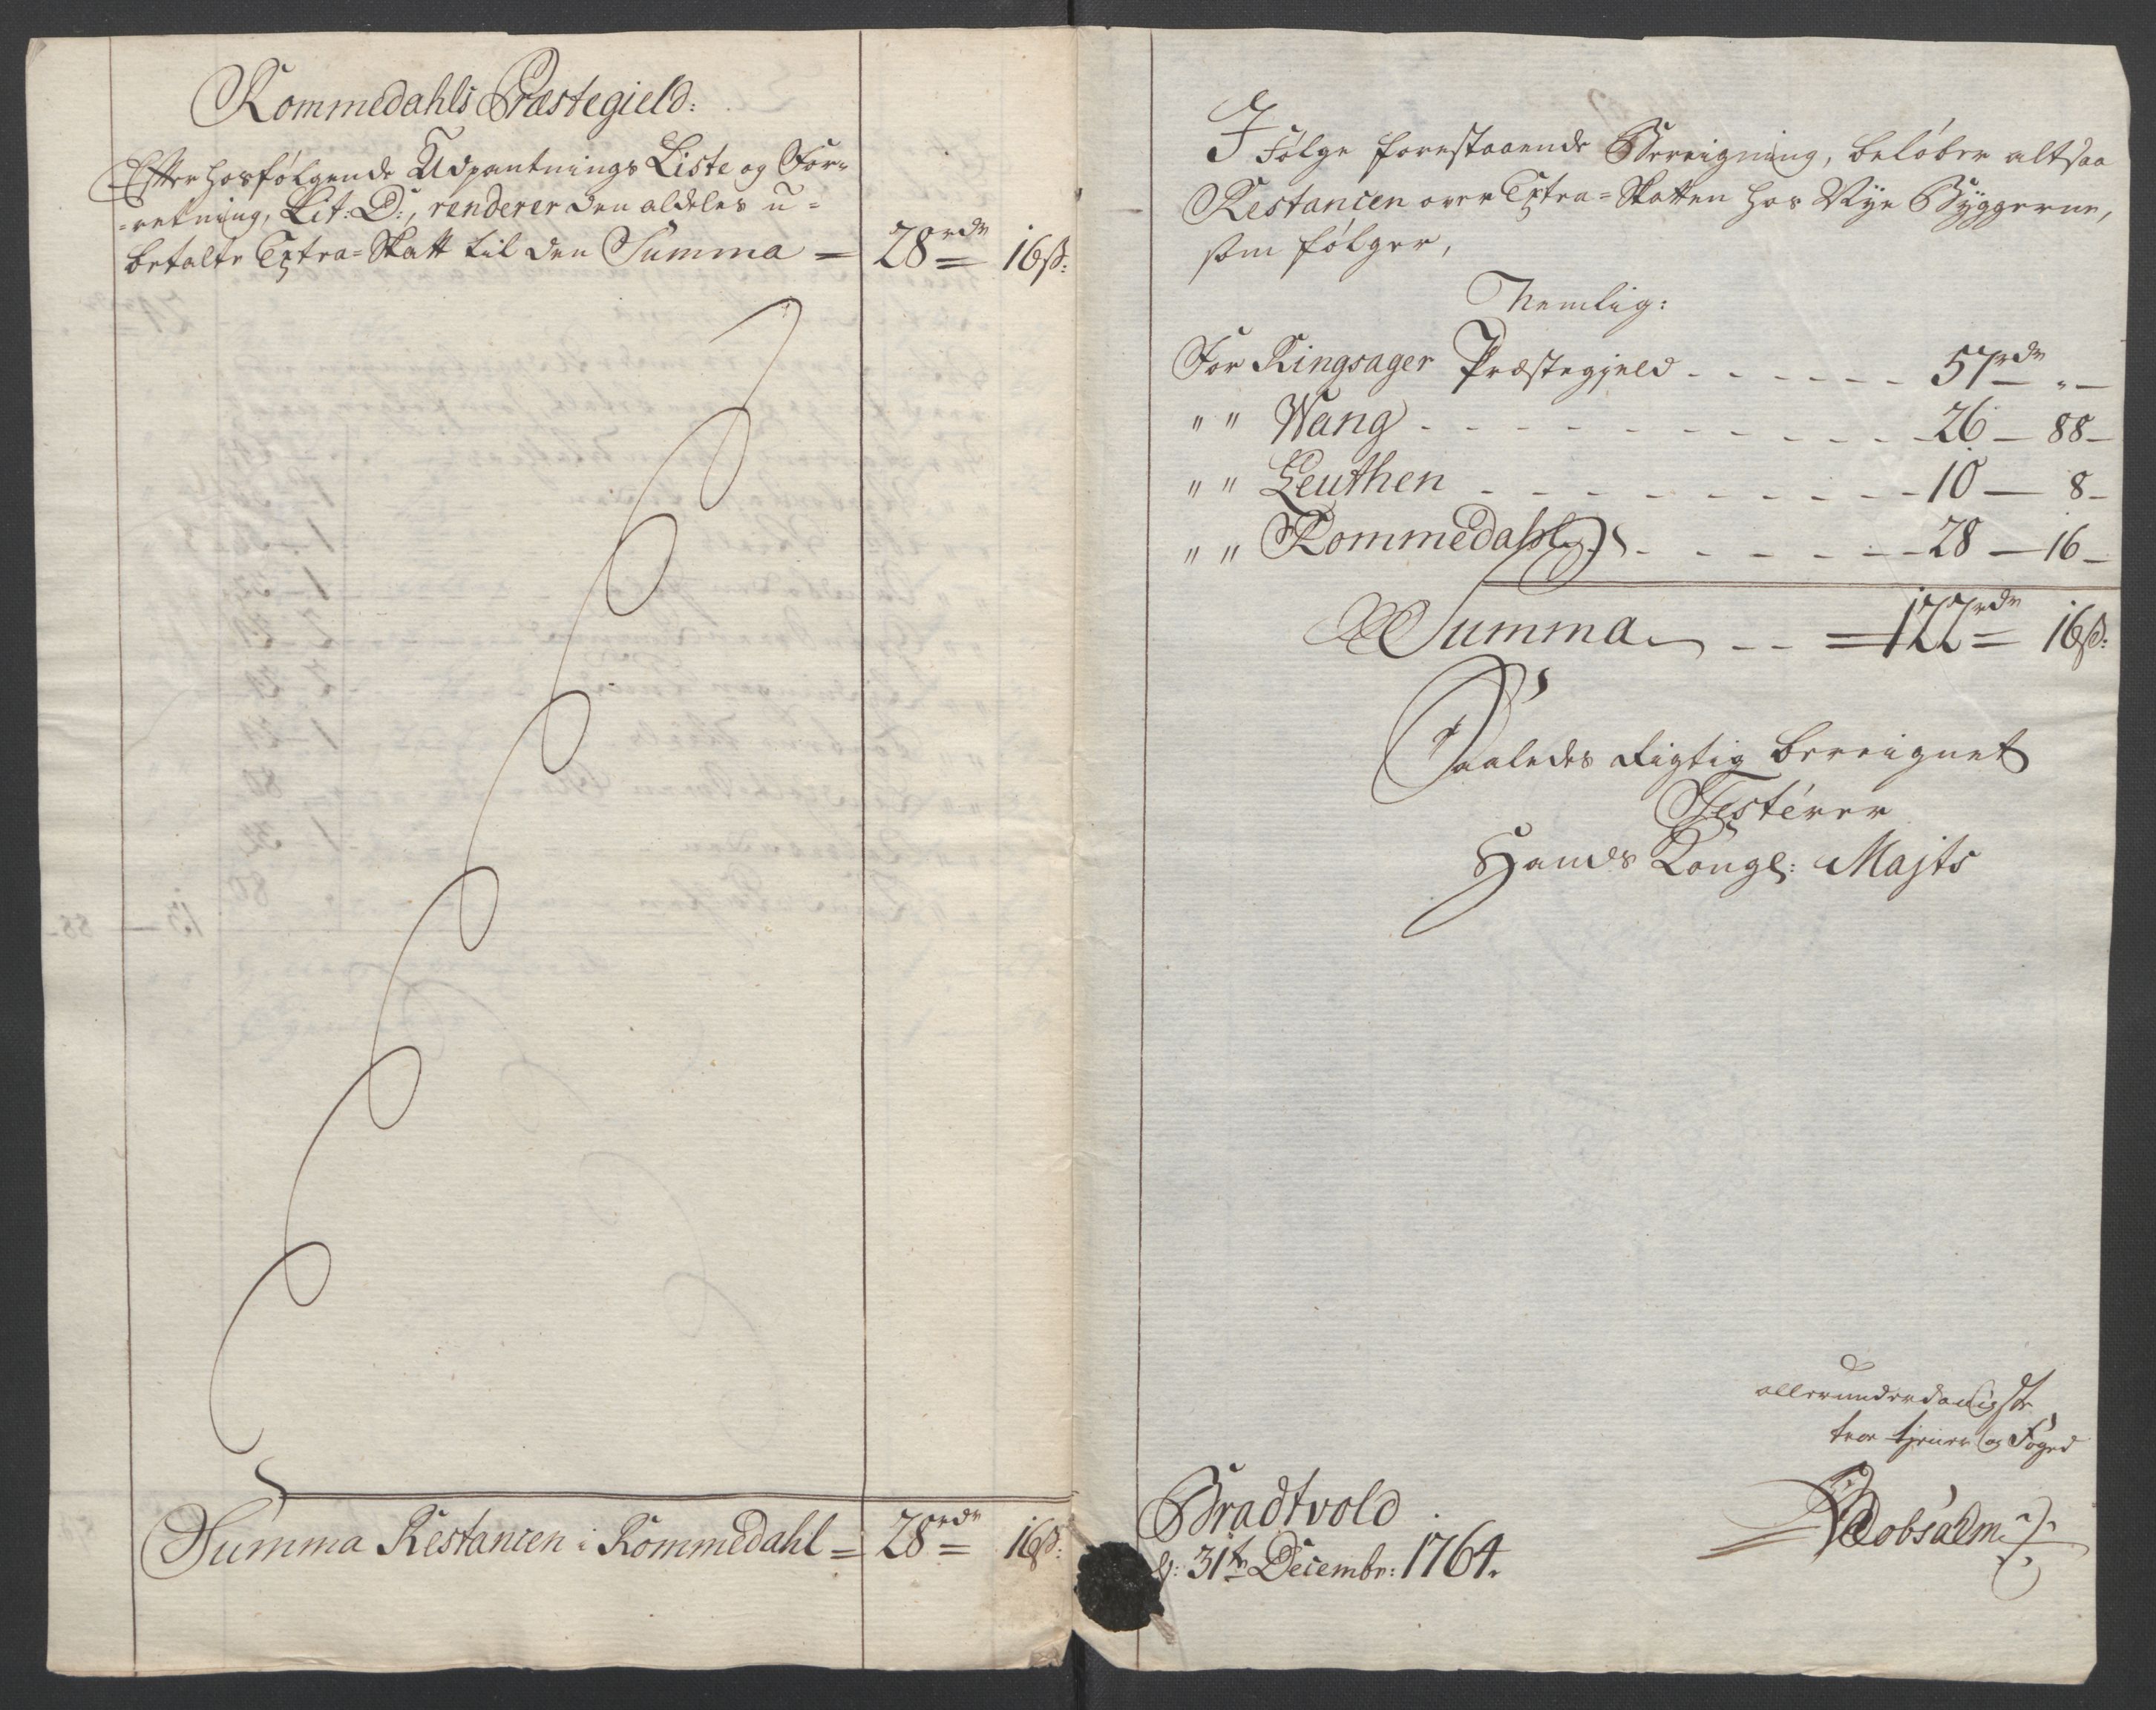 Rommedahls Præstegield:
Efter hosfølgende Udpantnings Liste og For-
-retning, Lit: D:, renderer den aldeles u-
betalte Extra-Skatt til den Summa = 28rdr = 16ß:
Summa Restancen i Rommedahl = 28rdr = 16ß:
I Følge forestaaende Bereigning, beløber altsaa
Restancen over Extra-Skatten hos Nye Byggerne,
som følger,
Nemlig:
For Ringsager Præstegjeld - - - - - - 57rdr " -
" " Wang - - - - - - - - - - - 26 - 88 -
" " Leuthen - - - - - - - - - - 10 - 8 -
" " Rommedahl - - - - - - 28 - 16 -
Summa - - = 122rdr = 16ß:
Saaledes Rigtig bereignet
Testérer
Hands Kongl: Majts
allerunderdanigste
troe tjener og Foged
Bradtvold
d: 31te Decembr: 1764.